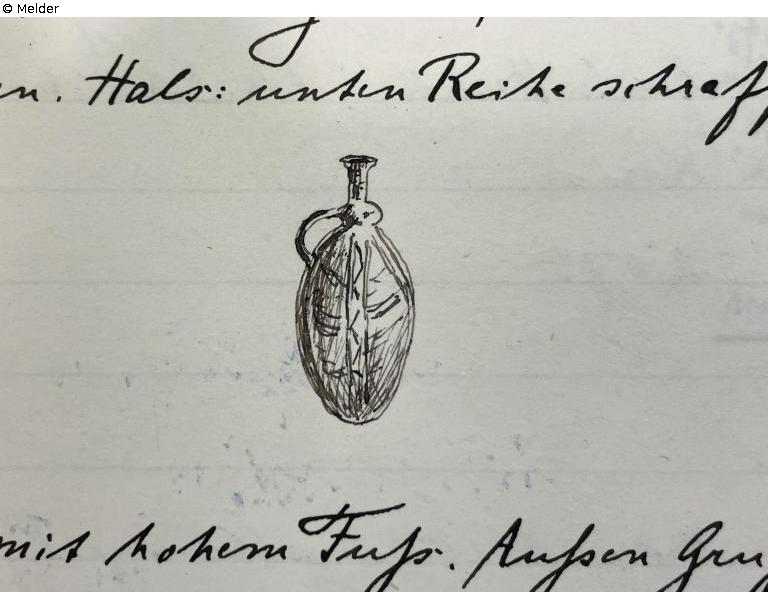 © Melder
en. Hals: unten Reihe schraff
mit hohem Fuß. Außen Gru